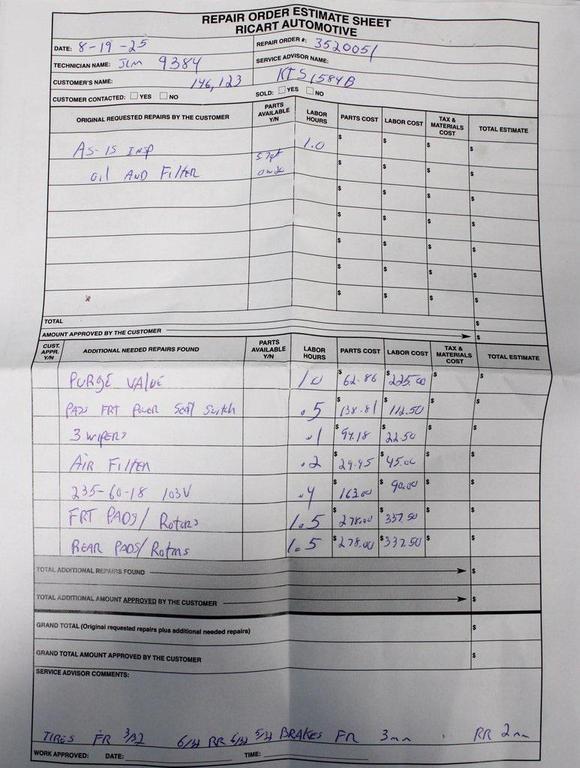 REPAIR ORDER ESTIMATE SHEET
RICART AUTOMOTIVE
DATE: 8-19-25 REPAIR ORDER #: 3520051
TECHNICIAN NAME: JLM 9384 SERVICE ADVISOR NAME:
CUSTOMER'S NAME: 146,123 KTS1584B
CUSTOMER CONTACTED: YES NO SOLD: YES NO
ORIGINAL REQUESTED REPAIRS BY THE CUSTOMER PARTS AVAILABLE Y/N LABOR HOURS PARTS COST LABOR COST TAX & MATERIALS COST TOTAL ESTIMATE
As-is insp 1.0 $ $ $ $
oil AND Filter $ $ $ $
$ $ $ $
$ $ $ $
$ $ $ $
$ $ $ $
$ $ $ $
TOTAL $
AMOUNT APPROVED BY THE CUSTOMER $
CUST. APPR. Y/N ADDITIONAL NEEDED REPAIRS FOUND PARTS AVAILABLE Y/N LABOR HOURS PARTS COST LABOR COST TAX & MATERIALS COST TOTAL ESTIMATE
PURGE VALVE 1.0 $62.86 $225.00 $ $
PASS FRT Power Seat Switch .5 $138.81 $112.50 $ $
3 wipers .1 $94.18 $22.50 $ $
Air Filter .2 $29.95 $45.00 $ $
235-60-18 103V .4 $163.00 $90.00 $ $
FRT PADS/Rotors 1.5 $278.00 $337.50 $ $
REAR PADS/Rotors 1.5 $278.00 $337.50 $ $
TOTAL ADDITIONAL REPAIRS FOUND $
TOTAL ADDITIONAL AMOUNT APPROVED BY THE CUSTOMER $
GRAND TOTAL (Original requested repairs plus additional needed repairs) $
GRAND TOTAL AMOUNT APPROVED BY THE CUSTOMER $
SERVICE ADVISOR COMMENTS:
TIRES FR 3/32 6/32 RR 6/32 5/32 BRAKES FR 3mm RR 2mm
WORK APPROVED: DATE: TIME: